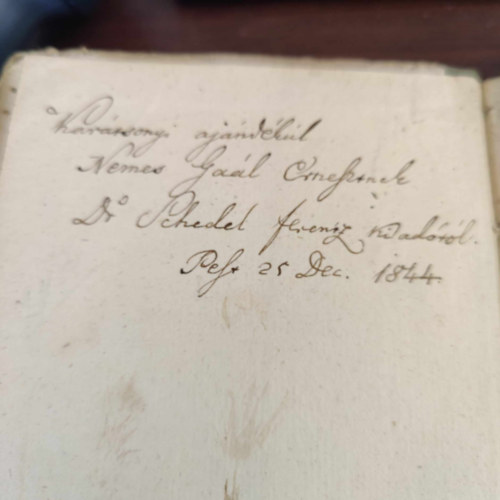 Karátsonyi ajándékúl
Nemes Gaál Ernesztnek
Dr Schedel ferenz kiadótól.
Pest 25 Dec. 1844.